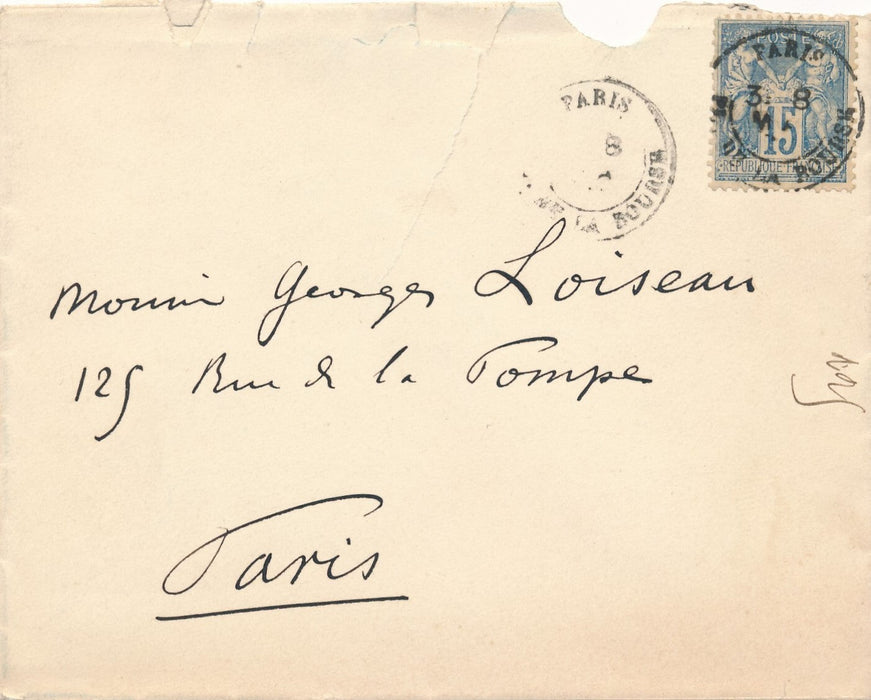 POSTE
PARIS
3 8
15
RÉPUBLIQUE FRANÇAISE
DE LA BOURSE
PARIS
8
DE LA BOURSE
Monsieur Georges Loiseau
125 Rue de la Pompe
Paris